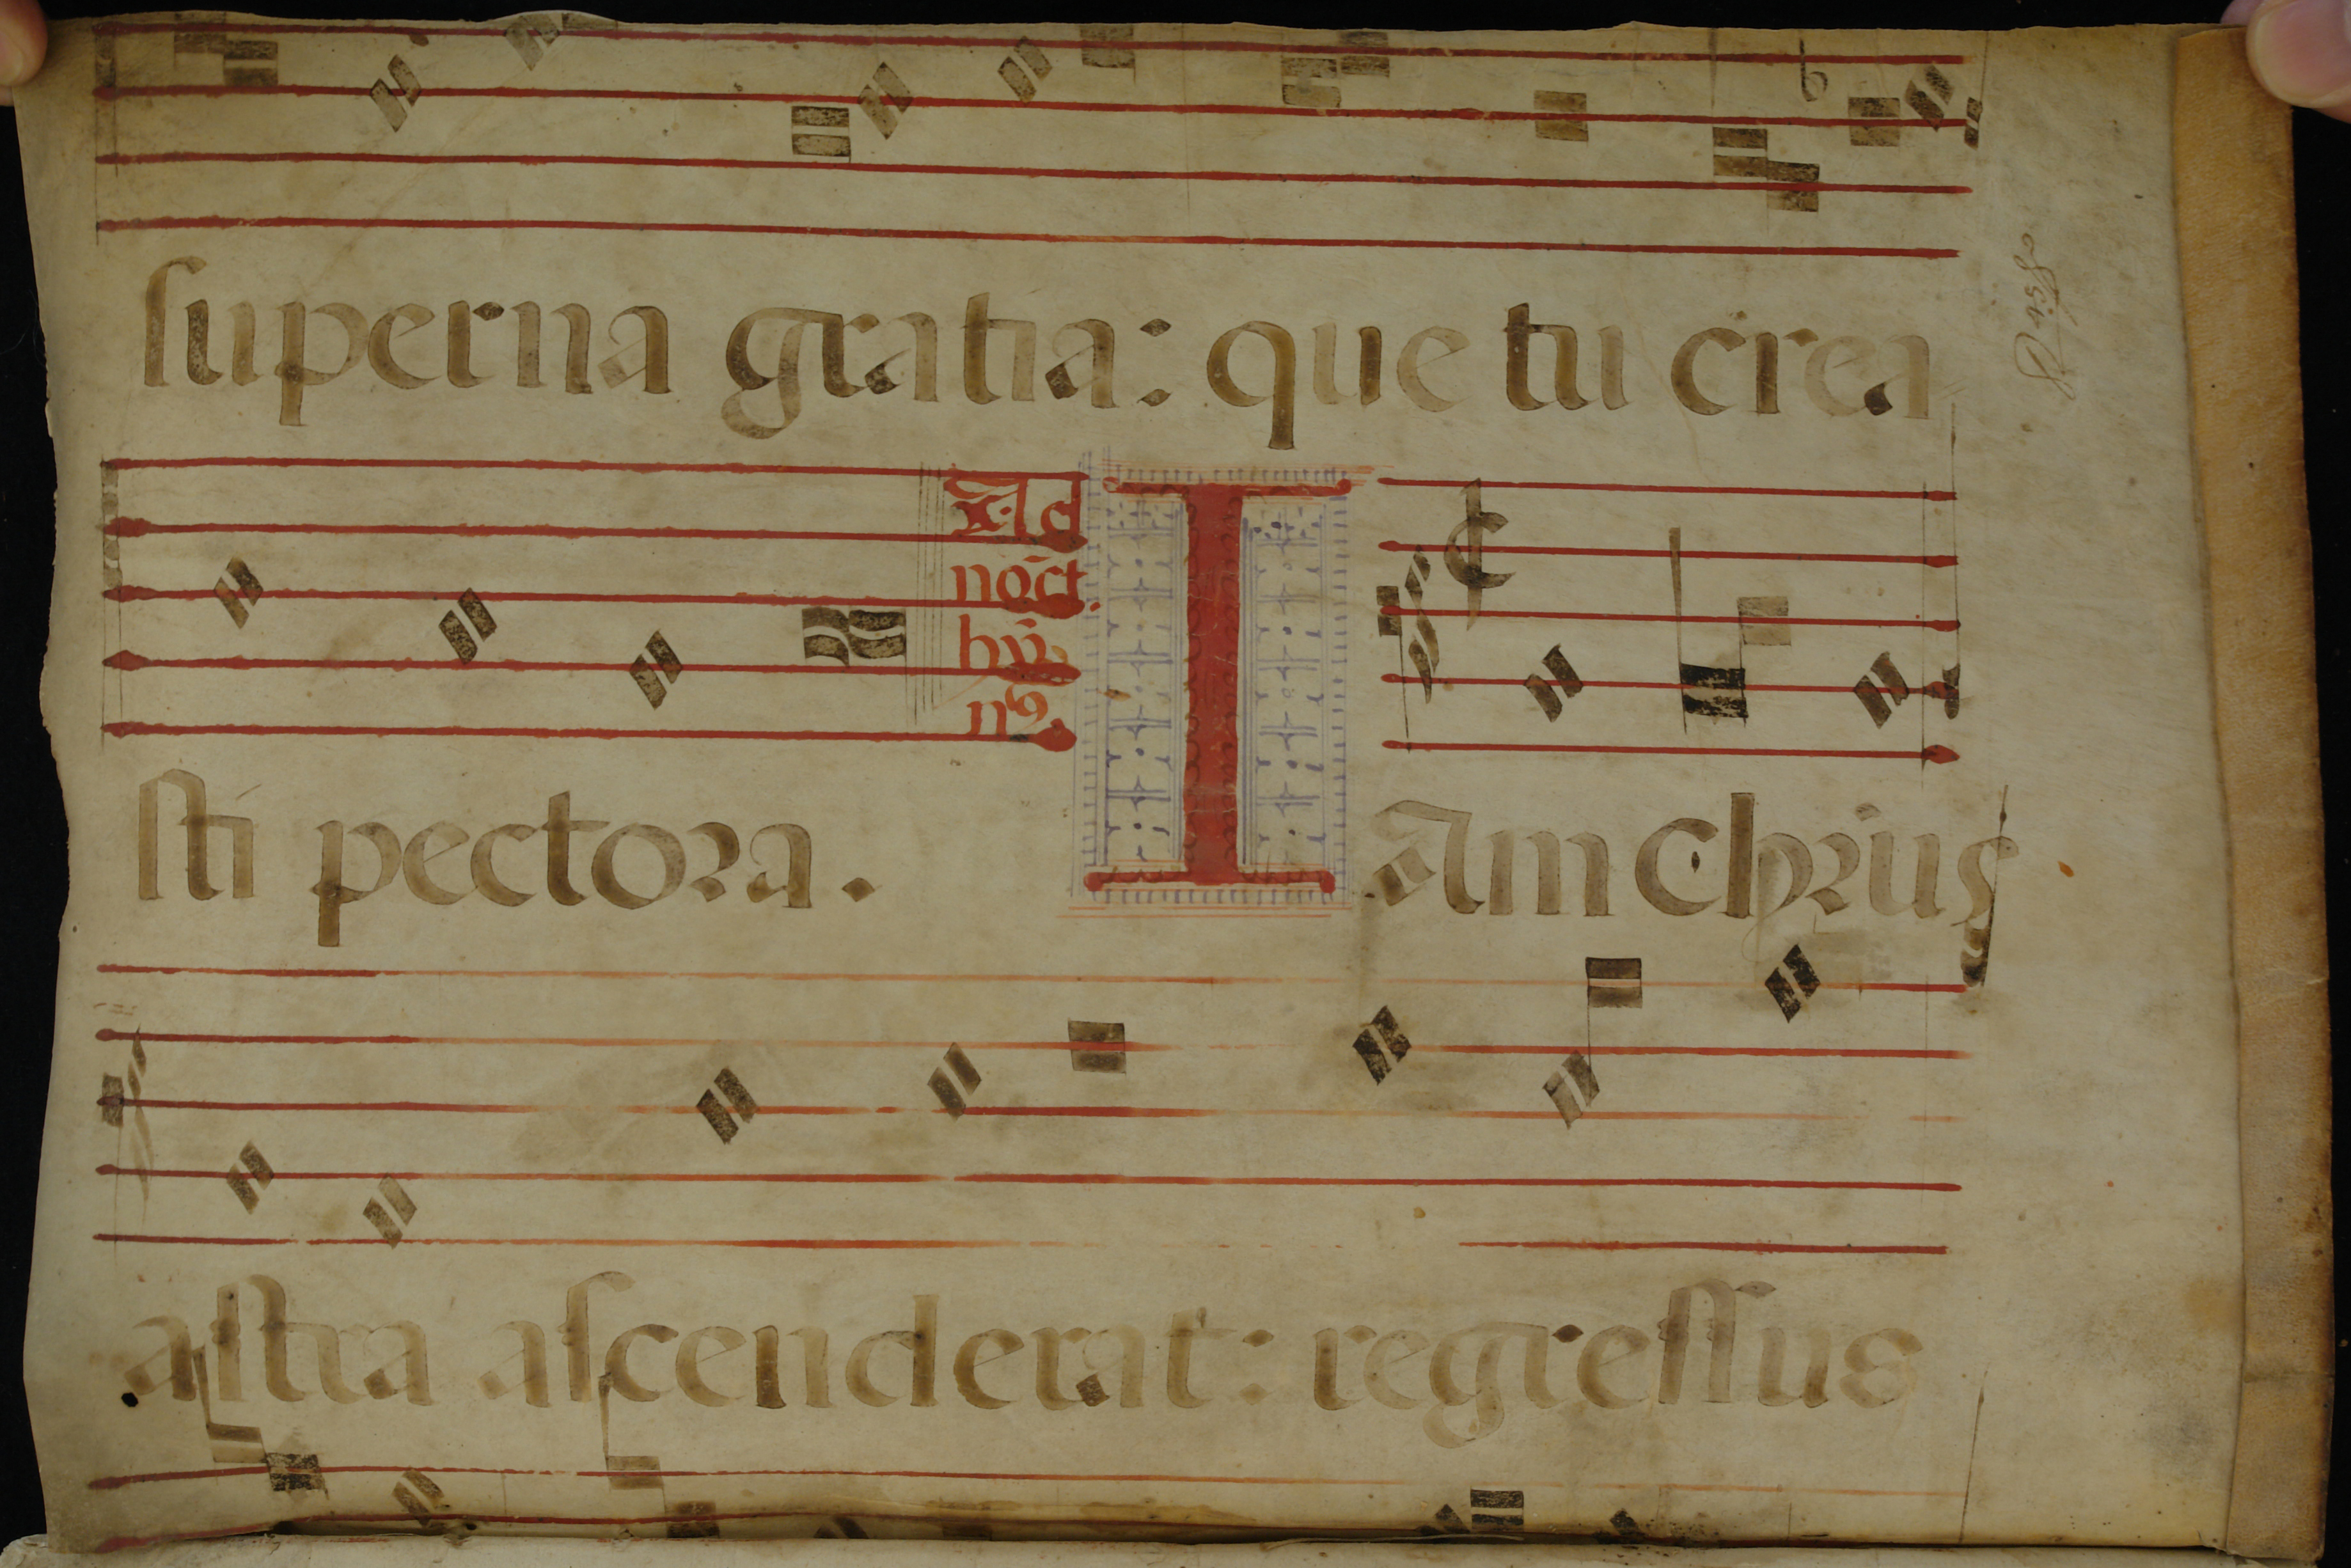 superna gratia: que tu crea
Ad
noct.
hy
nꝰ.
sti pectora.
IAm Chrius
astra ascenderat: regressus